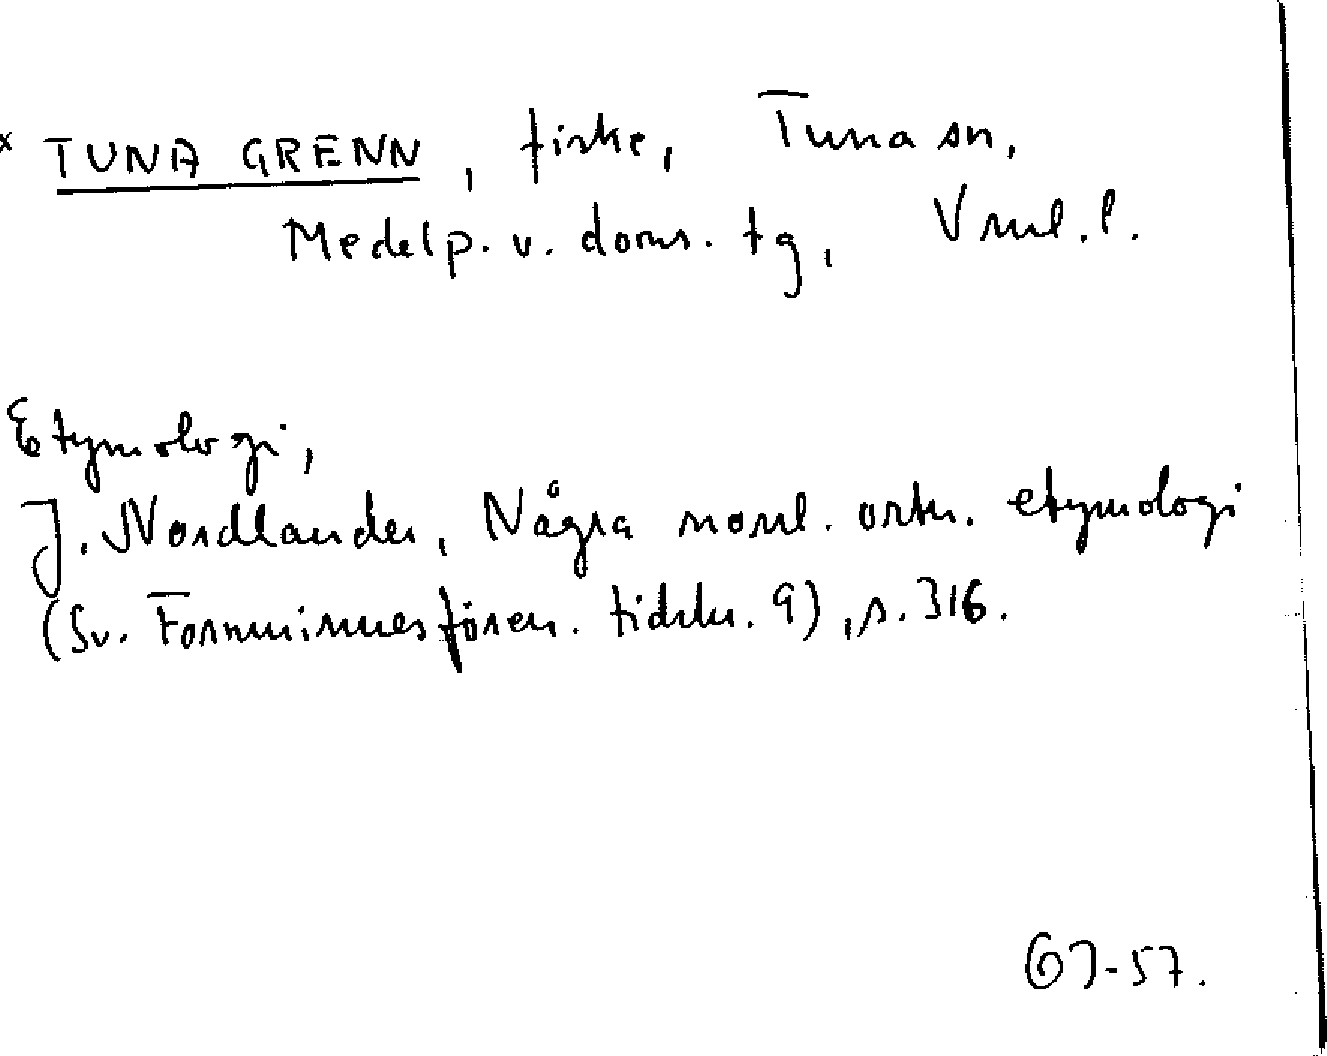 x TUNA GRENN, fiske, Tuna sn,
Medelp. v. doms. tg, Vnrl. l.
Etymologi,
J. Nordlander, Några norrl. ortn. etymologi
(Sv. Fornminnesfören. tidskr. 9), s. 316.
GJ-57.